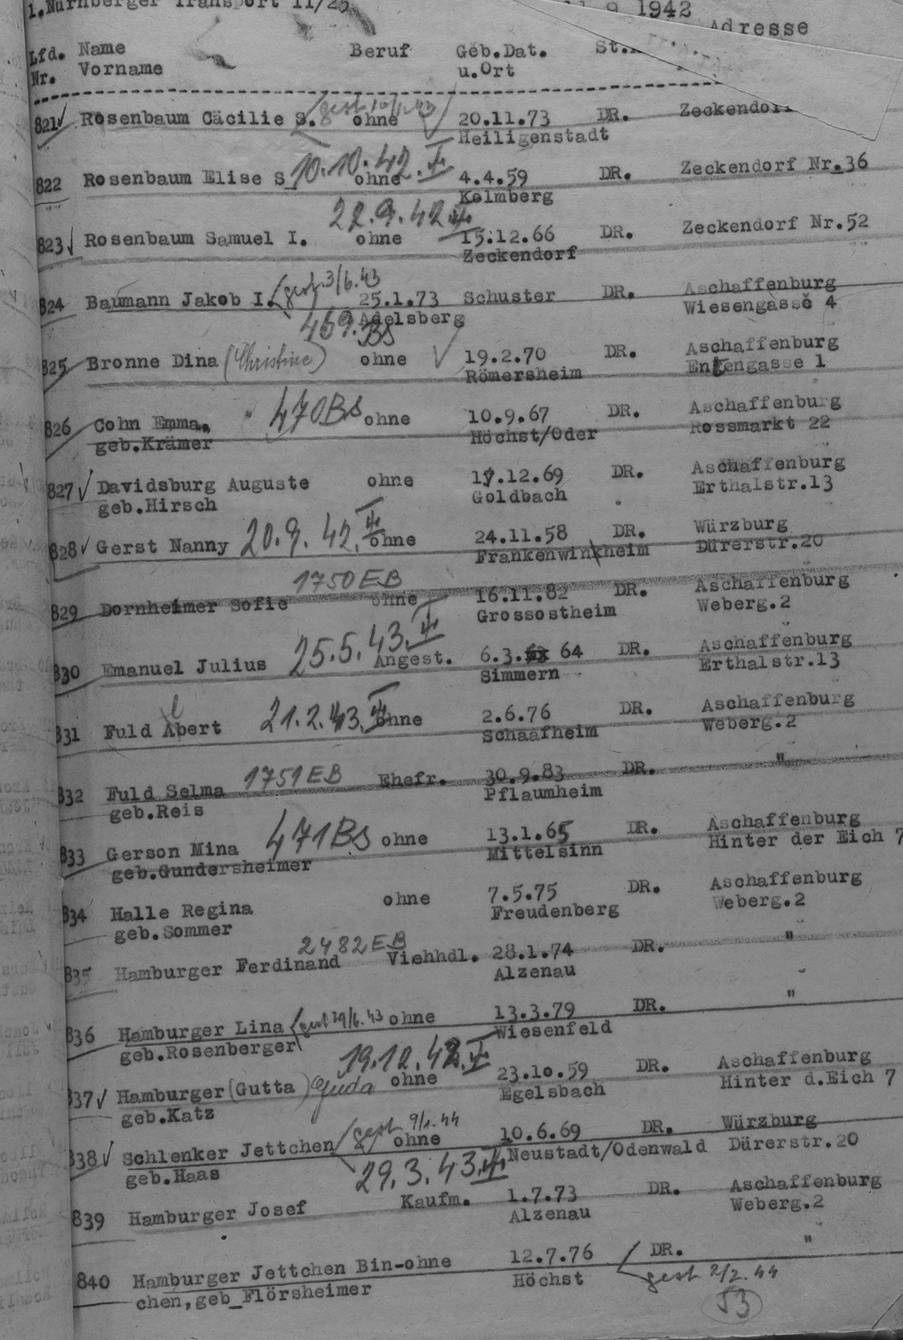 1.Nürnberger Transport II/25
9 1942
Adresse
Lfd. Name Beruf Geb.Dat. St.
Nr. Vorname u.Ort
821 Rosenbaum Cäcilie S. ohne 20.11.73 DR. Zeckendorf
Heiligenstadt
10.10.42.
822 Rosenbaum Elise S. ohne 4.4.59 DR. Zeckendorf Nr.36
Kolmberg
22.9.42
823 Rosenbaum Samuel I. ohne 15.12.66 DR. Zeckendorf Nr.52
Zeckendorf
gest. 3/6.43
824 Baumann Jakob I. 25.1.73 Schuster DR. Aschaffenburg
Adelsberg Wiesengasse 4
469.BS
825 Bronne Dina (Christine) ohne 19.2.70 DR. Aschaffenburg
Römersheim Entengasse 1
826 Cohn Emma, 470BS ohne 10.9.67 DR. Aschaffenburg
geb.Krämer Höchst/Oder Rossmarkt 22
827 Davidsburg Auguste ohne 17.12.69 DR. Aschaffenburg
geb.Hirsch Goldbach Erthalstr.13
828 Gerst Nanny 20.9.42. ohne 24.11.58 DR. Würzburg
Frankenwinkheim Dürerstr.20
1750EB
829 Dornheimer Sofie ohne 16.11.82 DR. Aschaffenburg
Grossostheim Weberg.2
830 Emanuel Julius 25.5.43. Angest. 6.3. 64 DR. Aschaffenburg
Simmern Erthalstr.13
l
831 Fuld Abert 21.2.43. ohne 2.6.76 DR. Aschaffenburg
Schaafheim Weberg.2
832 Fuld Selma 1751EB Ehefr. 30.9.83 DR. "
geb.Reis Pflaumheim
833 Gerson Mina 471BS ohne 13.1.65 DR. Aschaffenburg
geb.Gundersheimer Mittelsinn Hinter der Eich 7
834 Halle Regina ohne 7.5.75 DR. Aschaffenburg
geb.Sommer Freudenberg Weberg.2
2482EB
835 Hamburger Ferdinand Viehhdl. 28.1.74 DR. "
Alzenau
836 Hamburger Lina gest 29/6.43 ohne 13.3.79 DR. "
geb.Rosenberger Wiesenfeld
19.12.42.
837 Hamburger (Gutta) Guda ohne 23.10.59 DR. Aschaffenburg
geb.Katz Egelsbach Hinter d.Eich 7
gest 9/1.44
838 Schlenker Jettchen ohne 10.6.69 DR. Würzburg
geb.Haas Neustadt/Odenwald Dürerstr.20
29.3.43.
839 Hamburger Josef Kaufm. 1.7.73 DR. Aschaffenburg
Alzenau Weberg.2
840 Hamburger Jettchen Bin-ohne 12.7.76 DR. "
chen,geb_Flörsheimer Höchst gest 2/2.44
53